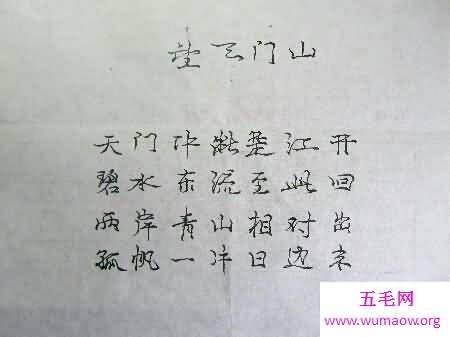 望天门山
天门中断楚江开
碧水东流至此回
两岸青山相对出
孤帆一片日边来
五毛网
www.wumaow.org